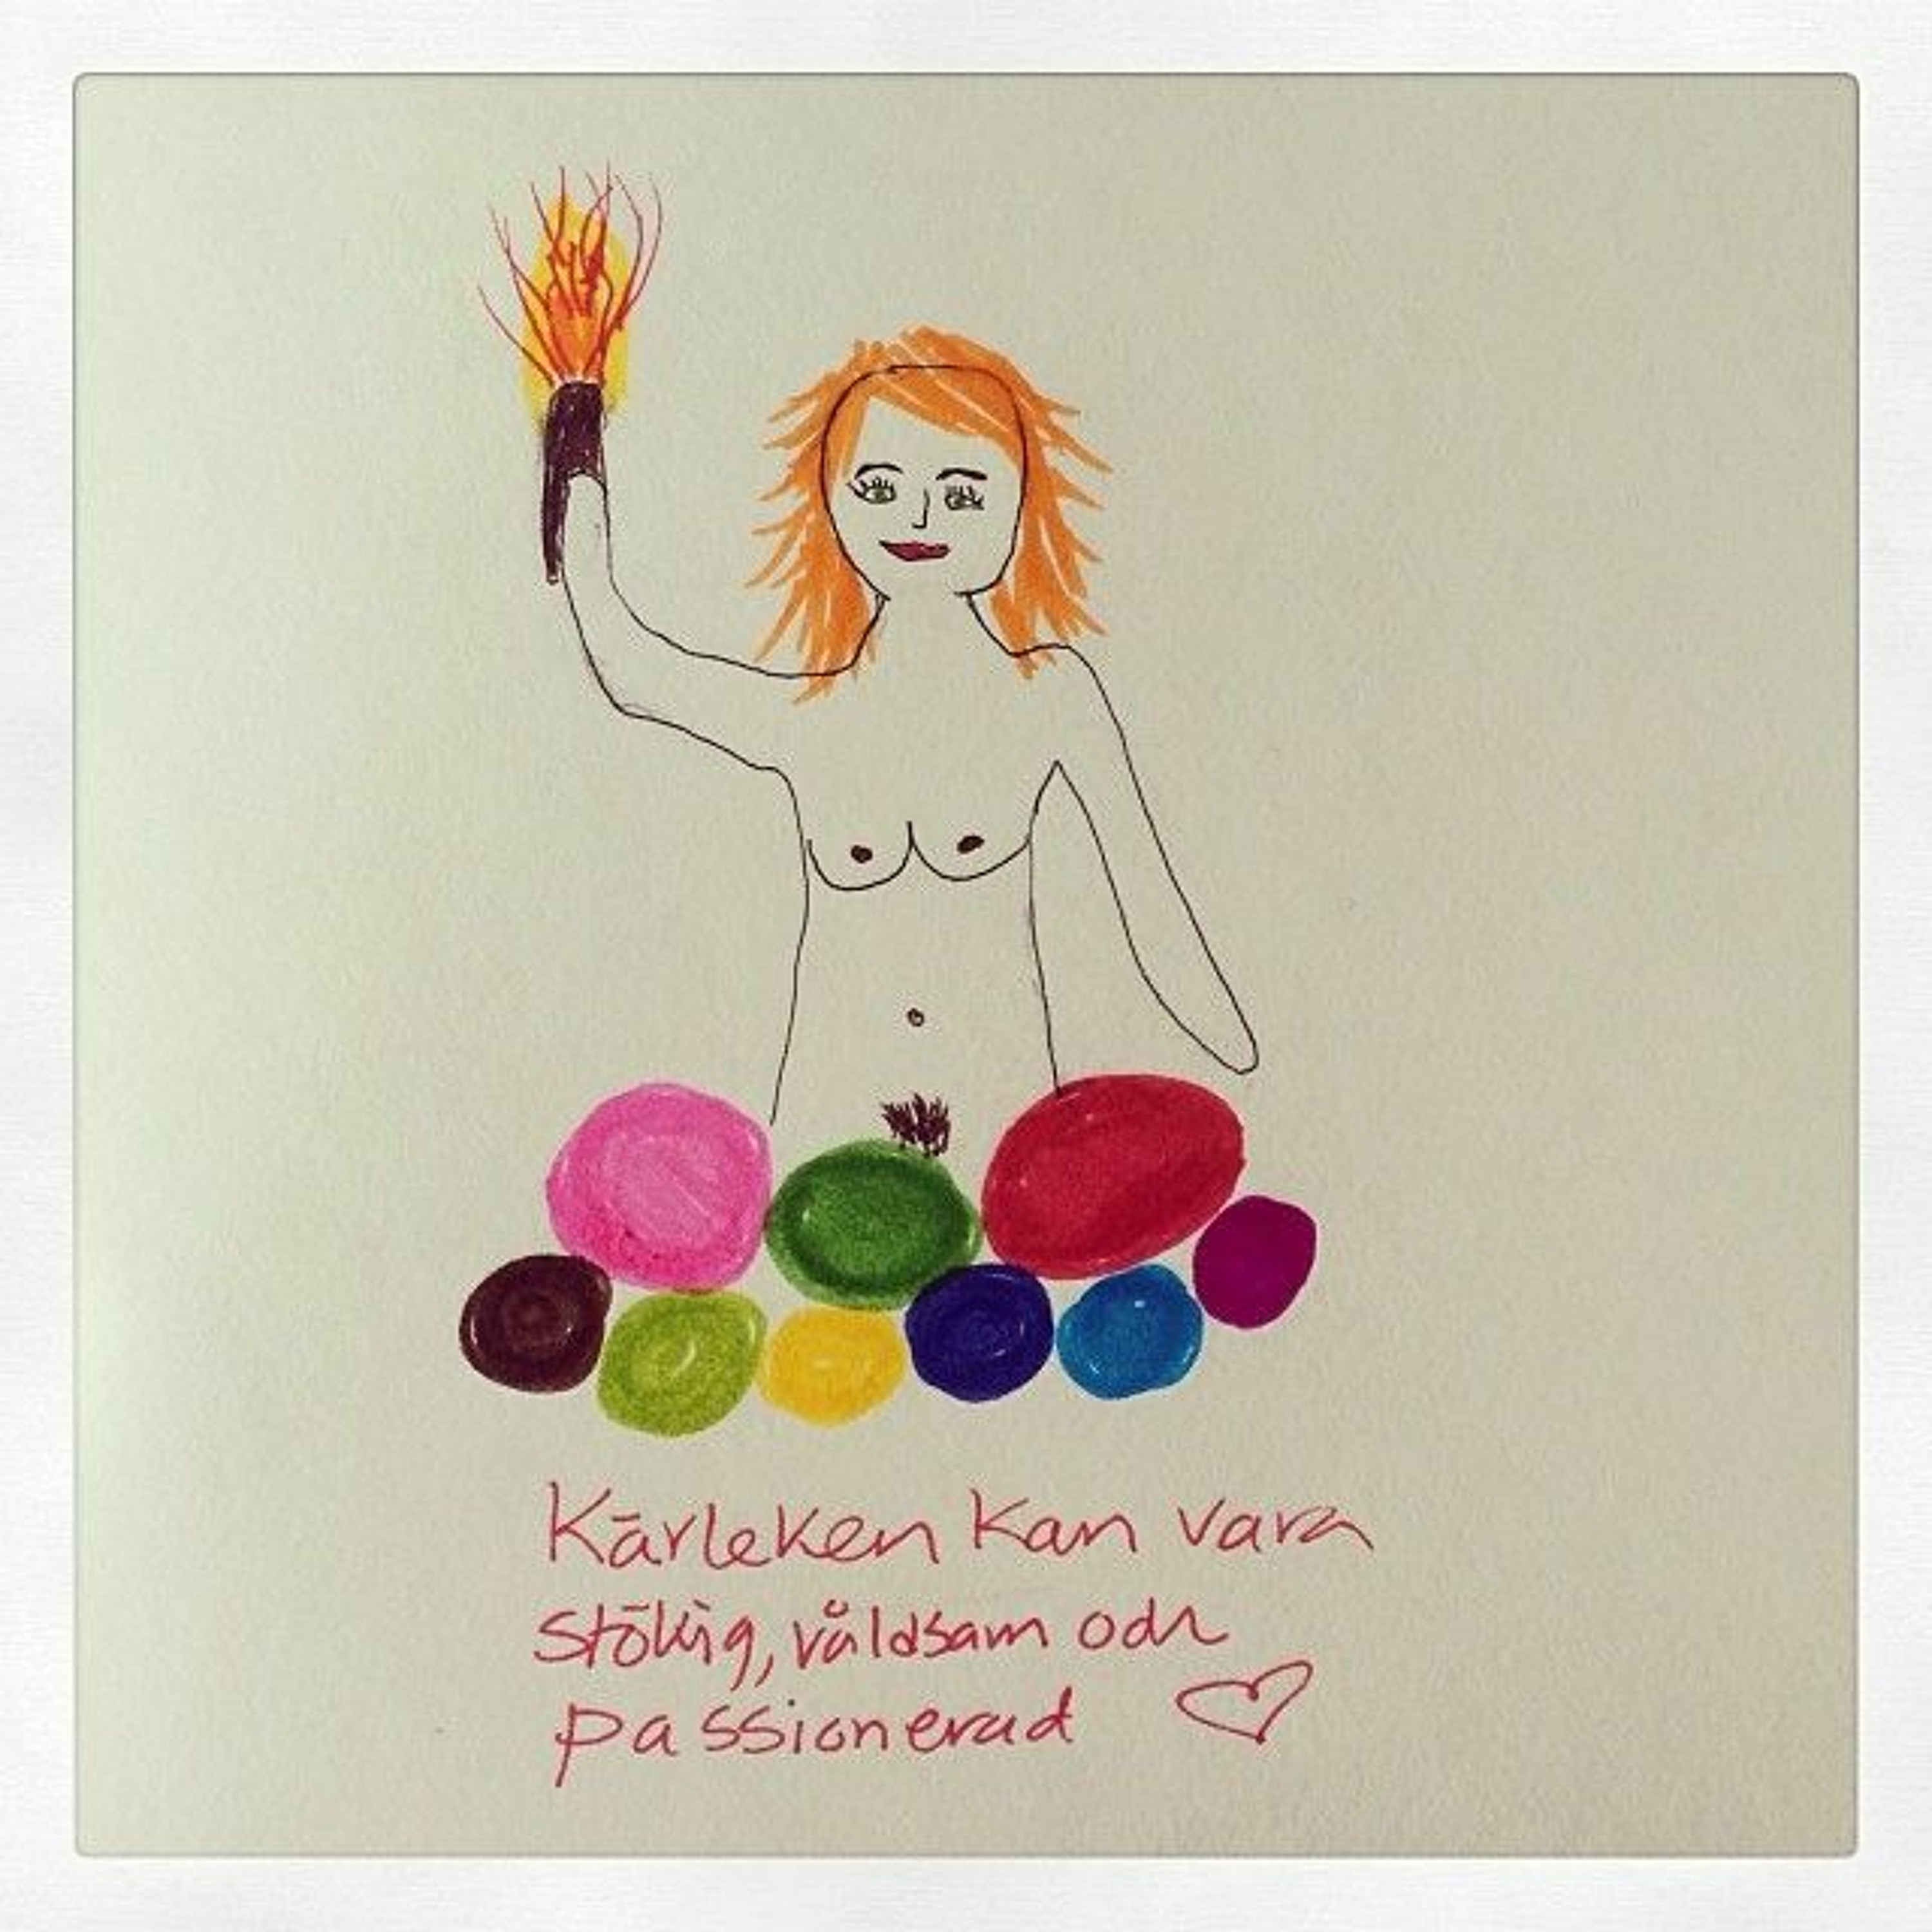 Kärleken kan vara
stökig, våldsam och
passionerad